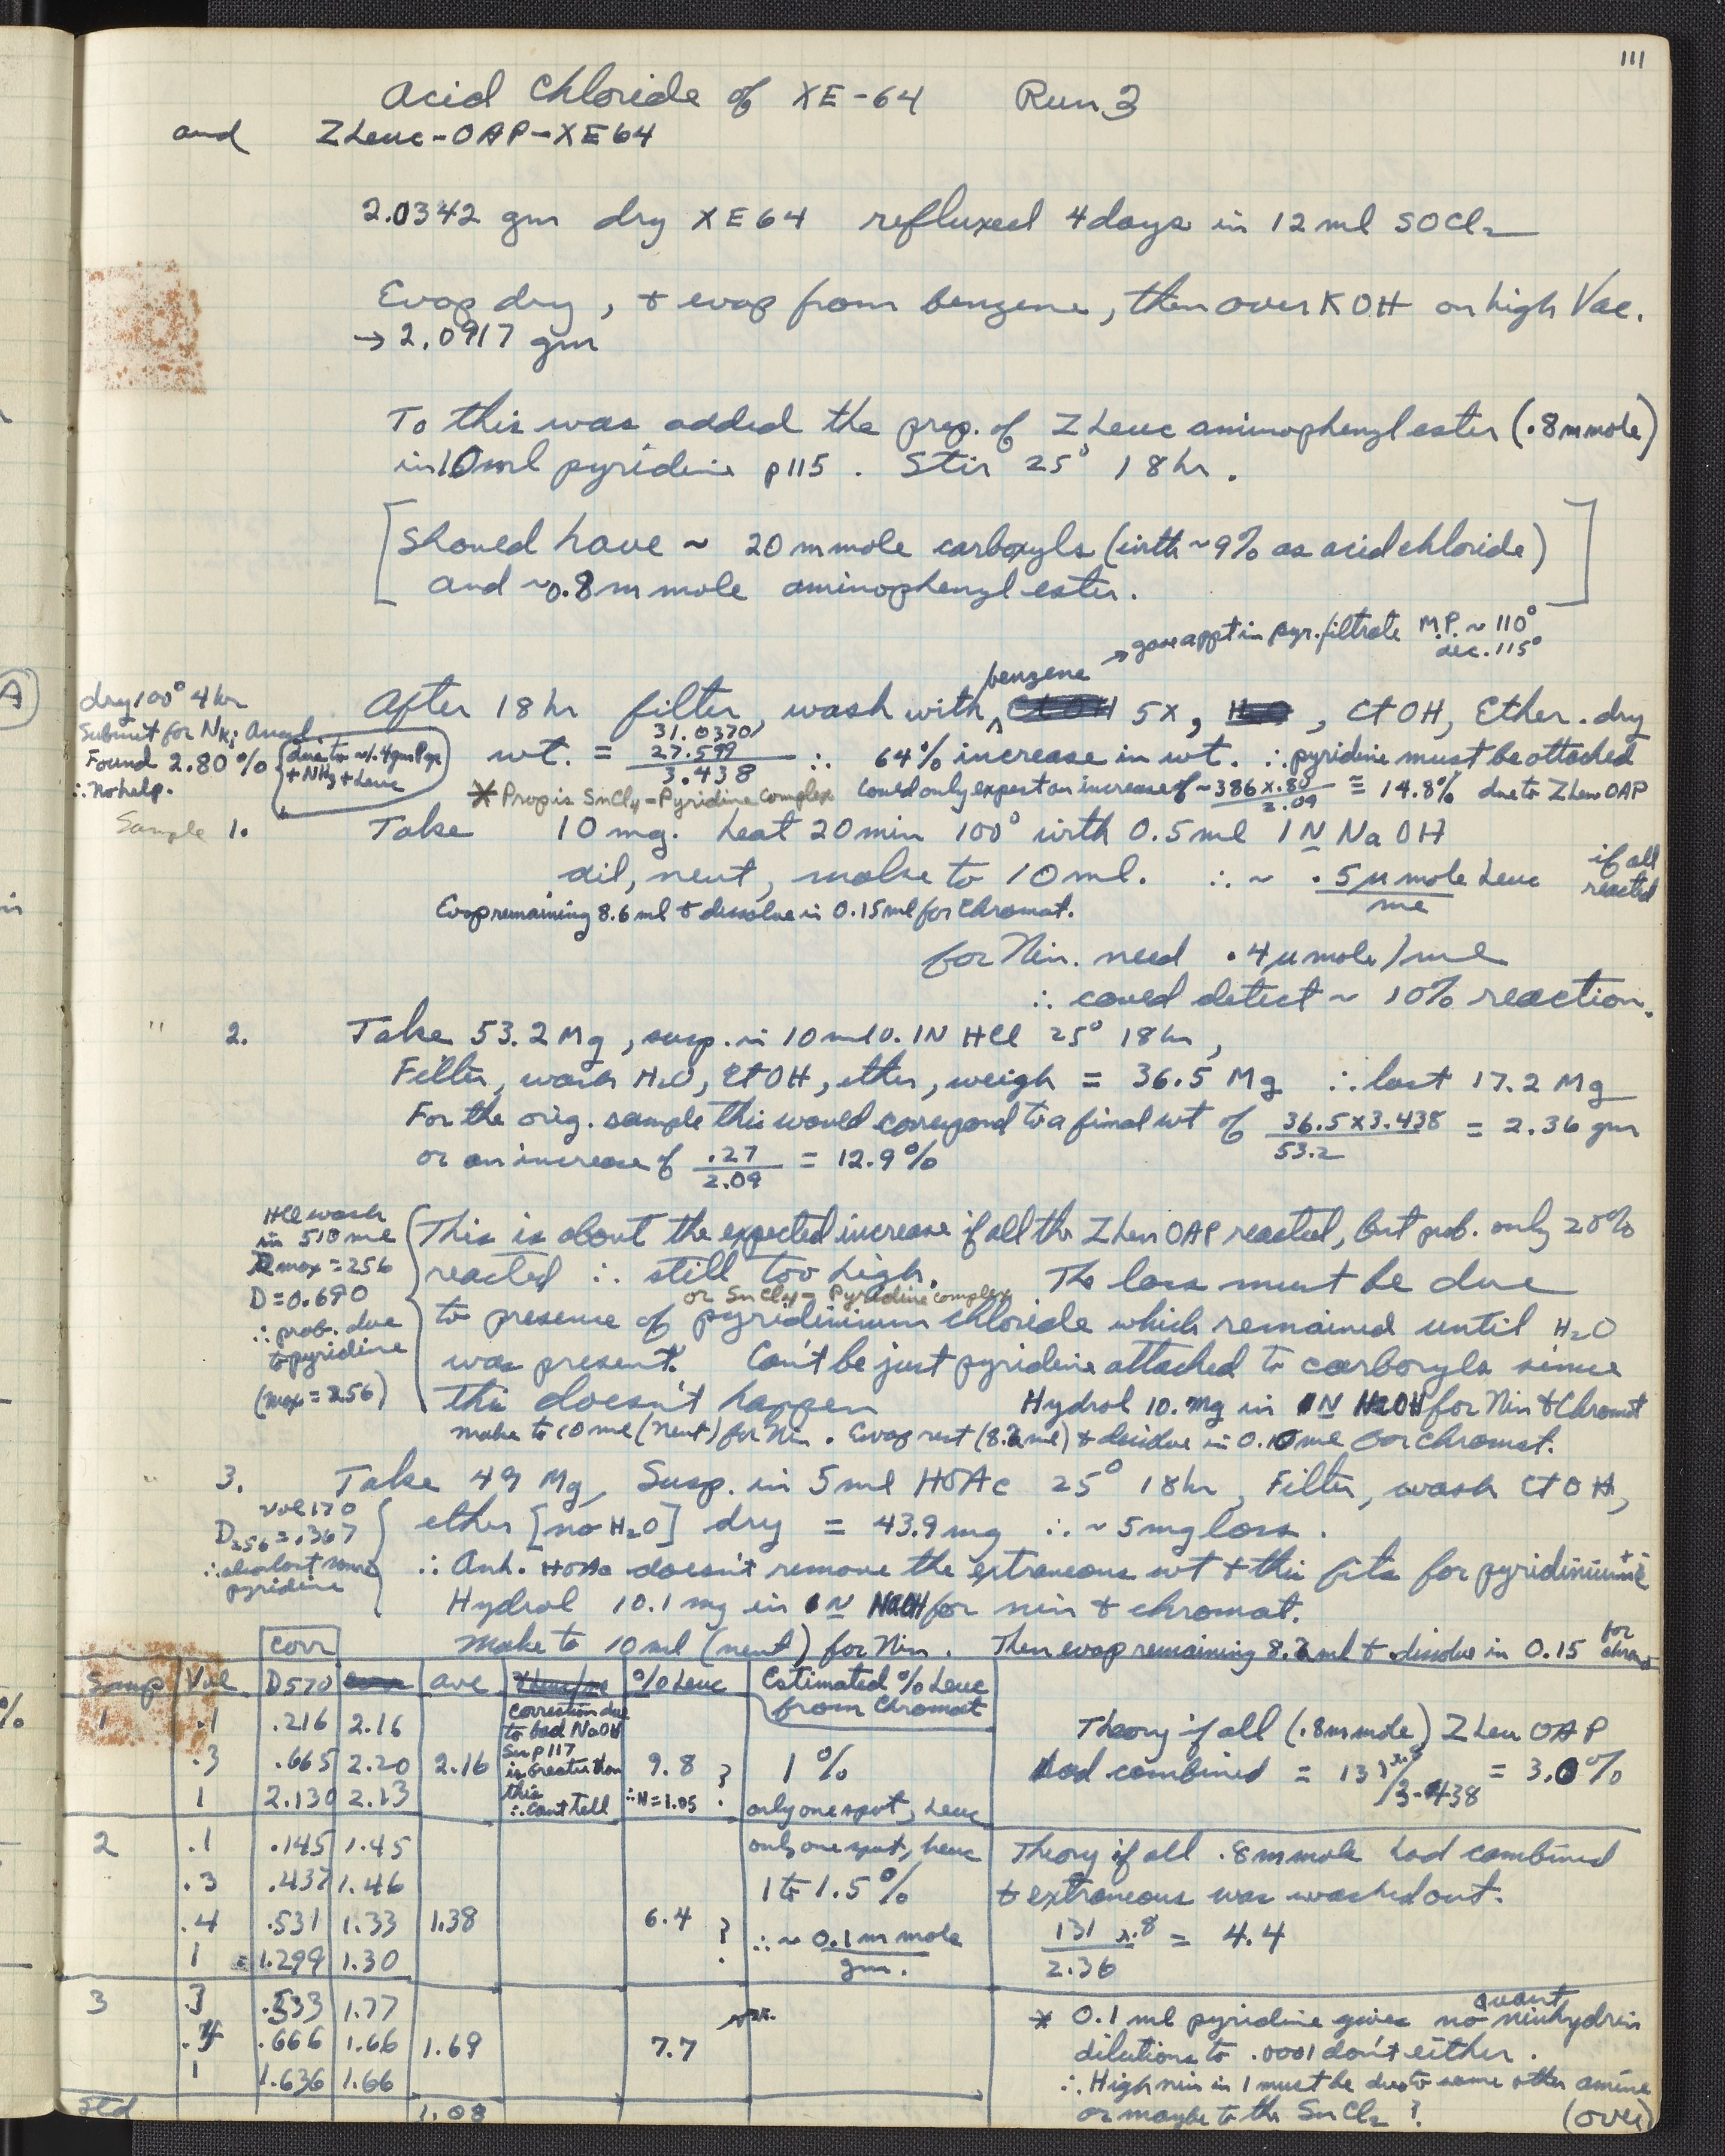 111
Acid Chloride of XE-64 Run 3
and ZLeuc-OAP-XE64
2.0342 gm dry XE64 refluxed 4 days in 12 ml SOCl2
Evap dry, & evap from benzene, then over KOH on high Vac.
→ 2.0917 gm
To this was added the prep. of ZLeuc aminophenyl ester (.8 mmole)
in 10 ml pyridine p115. Stir 25° 18 hr.
[Should have ~ 20 mmole carboxyls (with ~9% as acid chloride)
and ~0.8 m mole aminophenyl ester.]
→ gave a ppt in pyr. filtrate M.P. ~ 110°
dec. 115°
benzene
A
dry 100° 4 hr
Submit for NKj Anal.
Found 2.80%
∴ No help.
{due to
+ NH3 + Leuc
After 18 hr filter, wash with EtOH 5x, H2O, EtOH, Ether. dry
wt. = 31.0370 / 27.599 / 3.438 ∴ 64% increase in wt. ∴ pyridine must be attached
* Prop is SnCl4-Pyridine Complex Could only expect an increase of ~ 386 x .80 / 2.09 = 14.8% due to ZLeu OAP
Sample 1. Take 10 mg. heat 20 min 100° with 0.5 ml 1N NaOH
dil, neut, make to 10 ml. ∴ ~ .5 μ mole Leuc / ml if all reacted
Evap remaining 8.6 ml & dissolve in 0.15 ml for Chromat.
for Nin. need .4 μ mole/ml
∴ could detect ~ 10% reaction.
" 2. Take 53.2 Mg, susp. in 10 ml 0.1N HCl 25° 18 hr,
Filter, wash H2O, EtOH, ether, weigh = 36.5 Mg ∴ lost 17.2 Mg
For the orig. sample this would correspond to a final wt of 36.5 x 3.438 / 53.2 = 2.36 gm
or an increase of .27 / 2.09 = 12.9%
HCl wash
in 510 ml
max = 256
D = 0.690
∴ prob. due
to pyridine
(max = 256)
This is about the expected increase if all the ZLeu OAP reacted, but prob. only 20%
reacted ∴ still too high. The loss must be due
or SnCl4 - Pyridine complex
to presence of pyridinium chloride which remained until H2O
was present. Can't be just pyridine attached to carboxyls since
this doesn't happen Hydrol 10. mg in 1N NaOH for Nin & Chromat
make to 10 ml (neut) for Nin. Evap rest (8.2 ml) & dissolve in 0.10 ml for chromat.
" 3. Take 49 Mg, Susp. in 5 ml HOAc 25° 18 hr, Filter, wash EtOH,
Vol 170
D256 = .367
∴ also lost some
pyridine
ether [no H2O] dry = 43.9 mg ∴ ~ 5 mg loss.
∴ Anh. HOAc doesn't remove the extraneous wt & this fits for pyridinium+
Hydrol 10.1 mg in 1N NaOH for nin & chromat.
make to 10 ml (neut) for Nin. Then evap remaining 8.2 ml & dissolve in 0.15 for chromat
Corr
Samp Vol D570 ave % Leuc Estimated % Leuc from Chromat
1 .1 .216 2.16
.3 .665 2.20 2.16 9.8 ? 1%
1 2.130 2.13 ∴ N = 1.05 only one spot, Leuc
correction due
to bad NaOH
See p 117
is greater than
this
∴ can't tell
Theory if all (.8 mmole) ZLeu OAP
had combined = 131 x .8 / 3.438 = 3.0%
2 .1 .145 1.45 only one spot, Leuc
.3 .437 1.46 1 to 1.5%
.4 .531 1.33 1.38 6.4 ? ∴ ~ 0.1 m mole / gm.
1 1.299 1.30
Theory if all .8 m mole had combined
& extraneous was washed out.
131 x .8 / 2.36 = 4.4
3 .3 .533 1.77
.4 .666 1.66 1.69 7.7
1 1.636 1.66
Std 1.08
* 0.1 ml pyridine gives no quant ninhydrin
dilutions to .0001 don't either.
∴ High nin in 1 must be due to some other amine
or maybe to the SnCl2 ? (over)